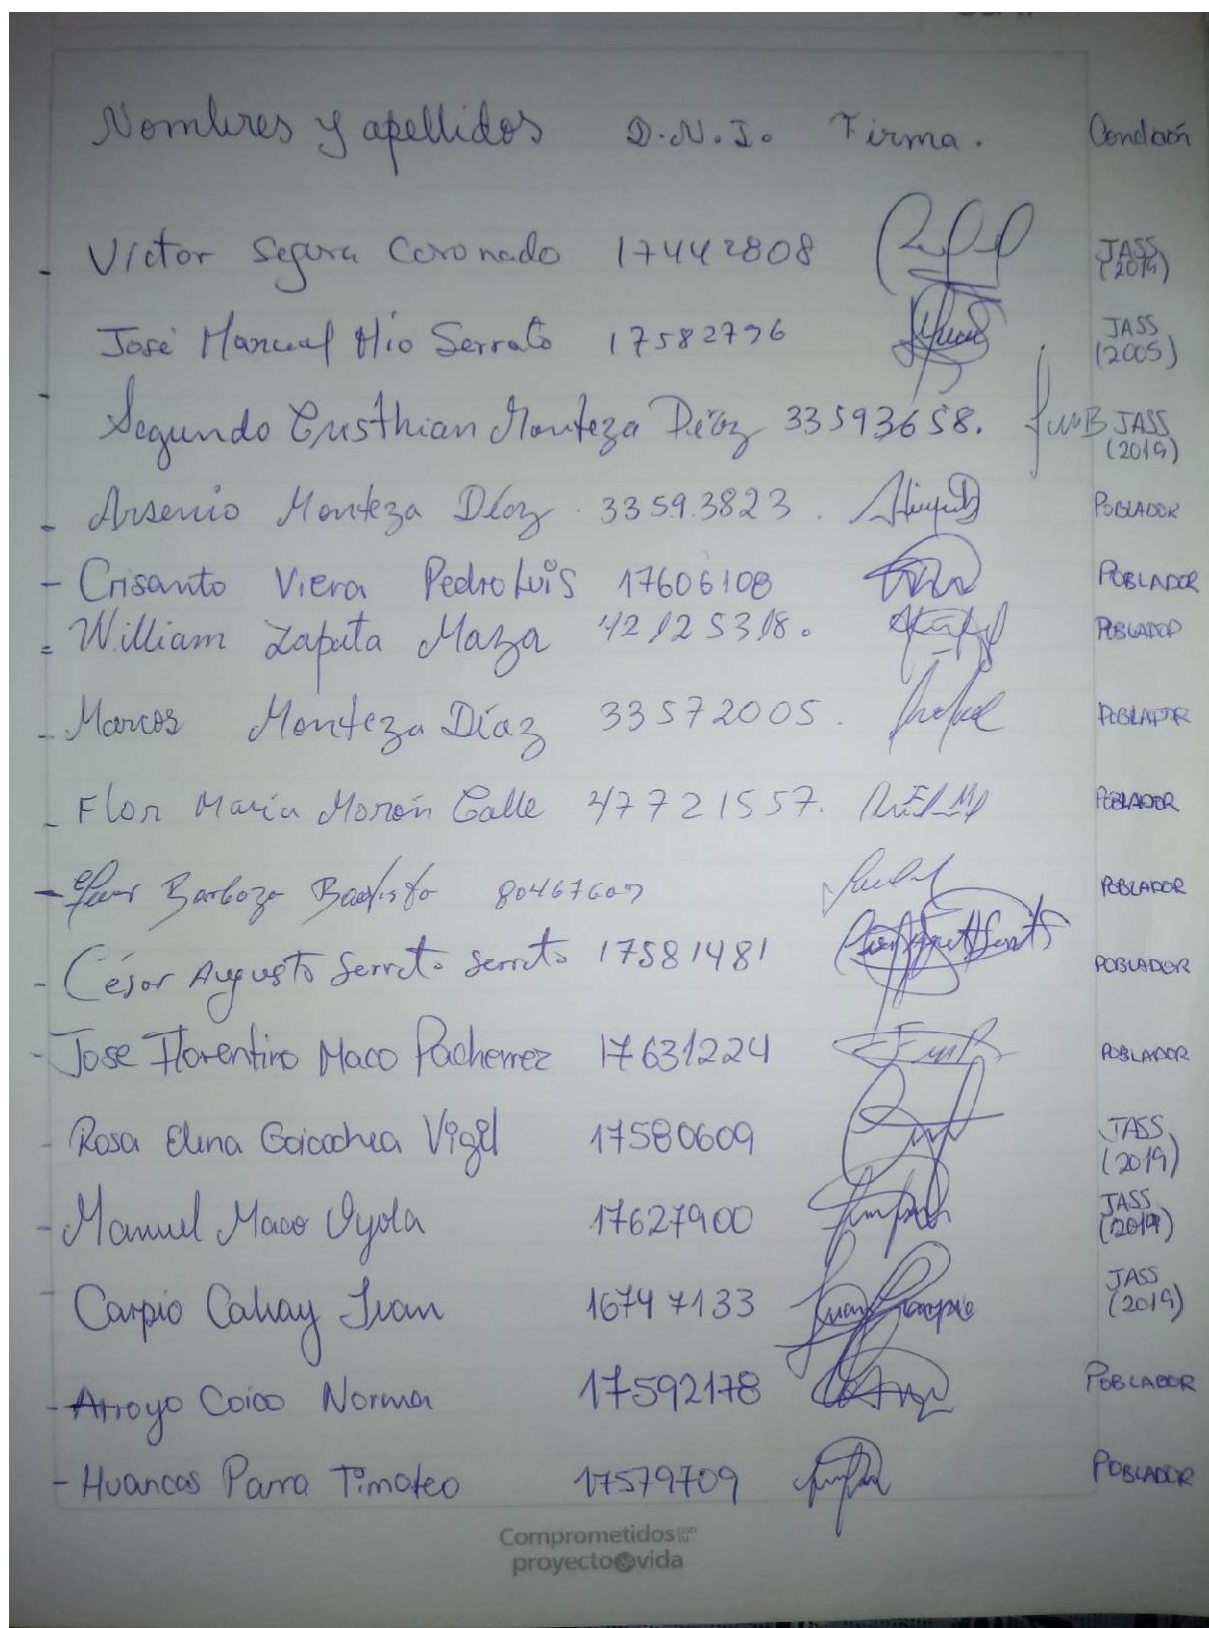 Nombres y apellidos D.N.I. Firma. Condición
- Víctor Segura Coronado 17442808 JASS (2019)
José Manuel Mío Serrato 17582796 JASS (2005)
- Segundo Cristhian Monteza Díaz 33593658. JASS (2019)
- Arsenio Monteza Díaz 33593823. POBLADOR
- Crisanto Viera Pedro Luis 17606108 POBLADOR
- William Zapata Maza POBLADOR
- Marcos Monteza Díaz 33572005. POBLADOR
- Flor María Morón Calle 47721557. POBLADOR
- Barboza Bautista 80467607 POBLADOR
- César Augusto Serrato Serrato 17581481 POBLADOR
- Jose Florentino Maco Pacherrez 17631224 POBLADOR
- Rosa Elena Goicochea Vigil 17580609 JASS (2019)
- Manuel Maco Oyola 17627900 JASS (2019)
- Carpio Cahay Ivan 16747133 Ivan Carpio JASS (2019)
- Arroyo Coico Norma 17592178 POBLADOR
- Huancas Parra Timoteo 17579709 POBLADOR
Comprometidos con tu
proyecto de vida